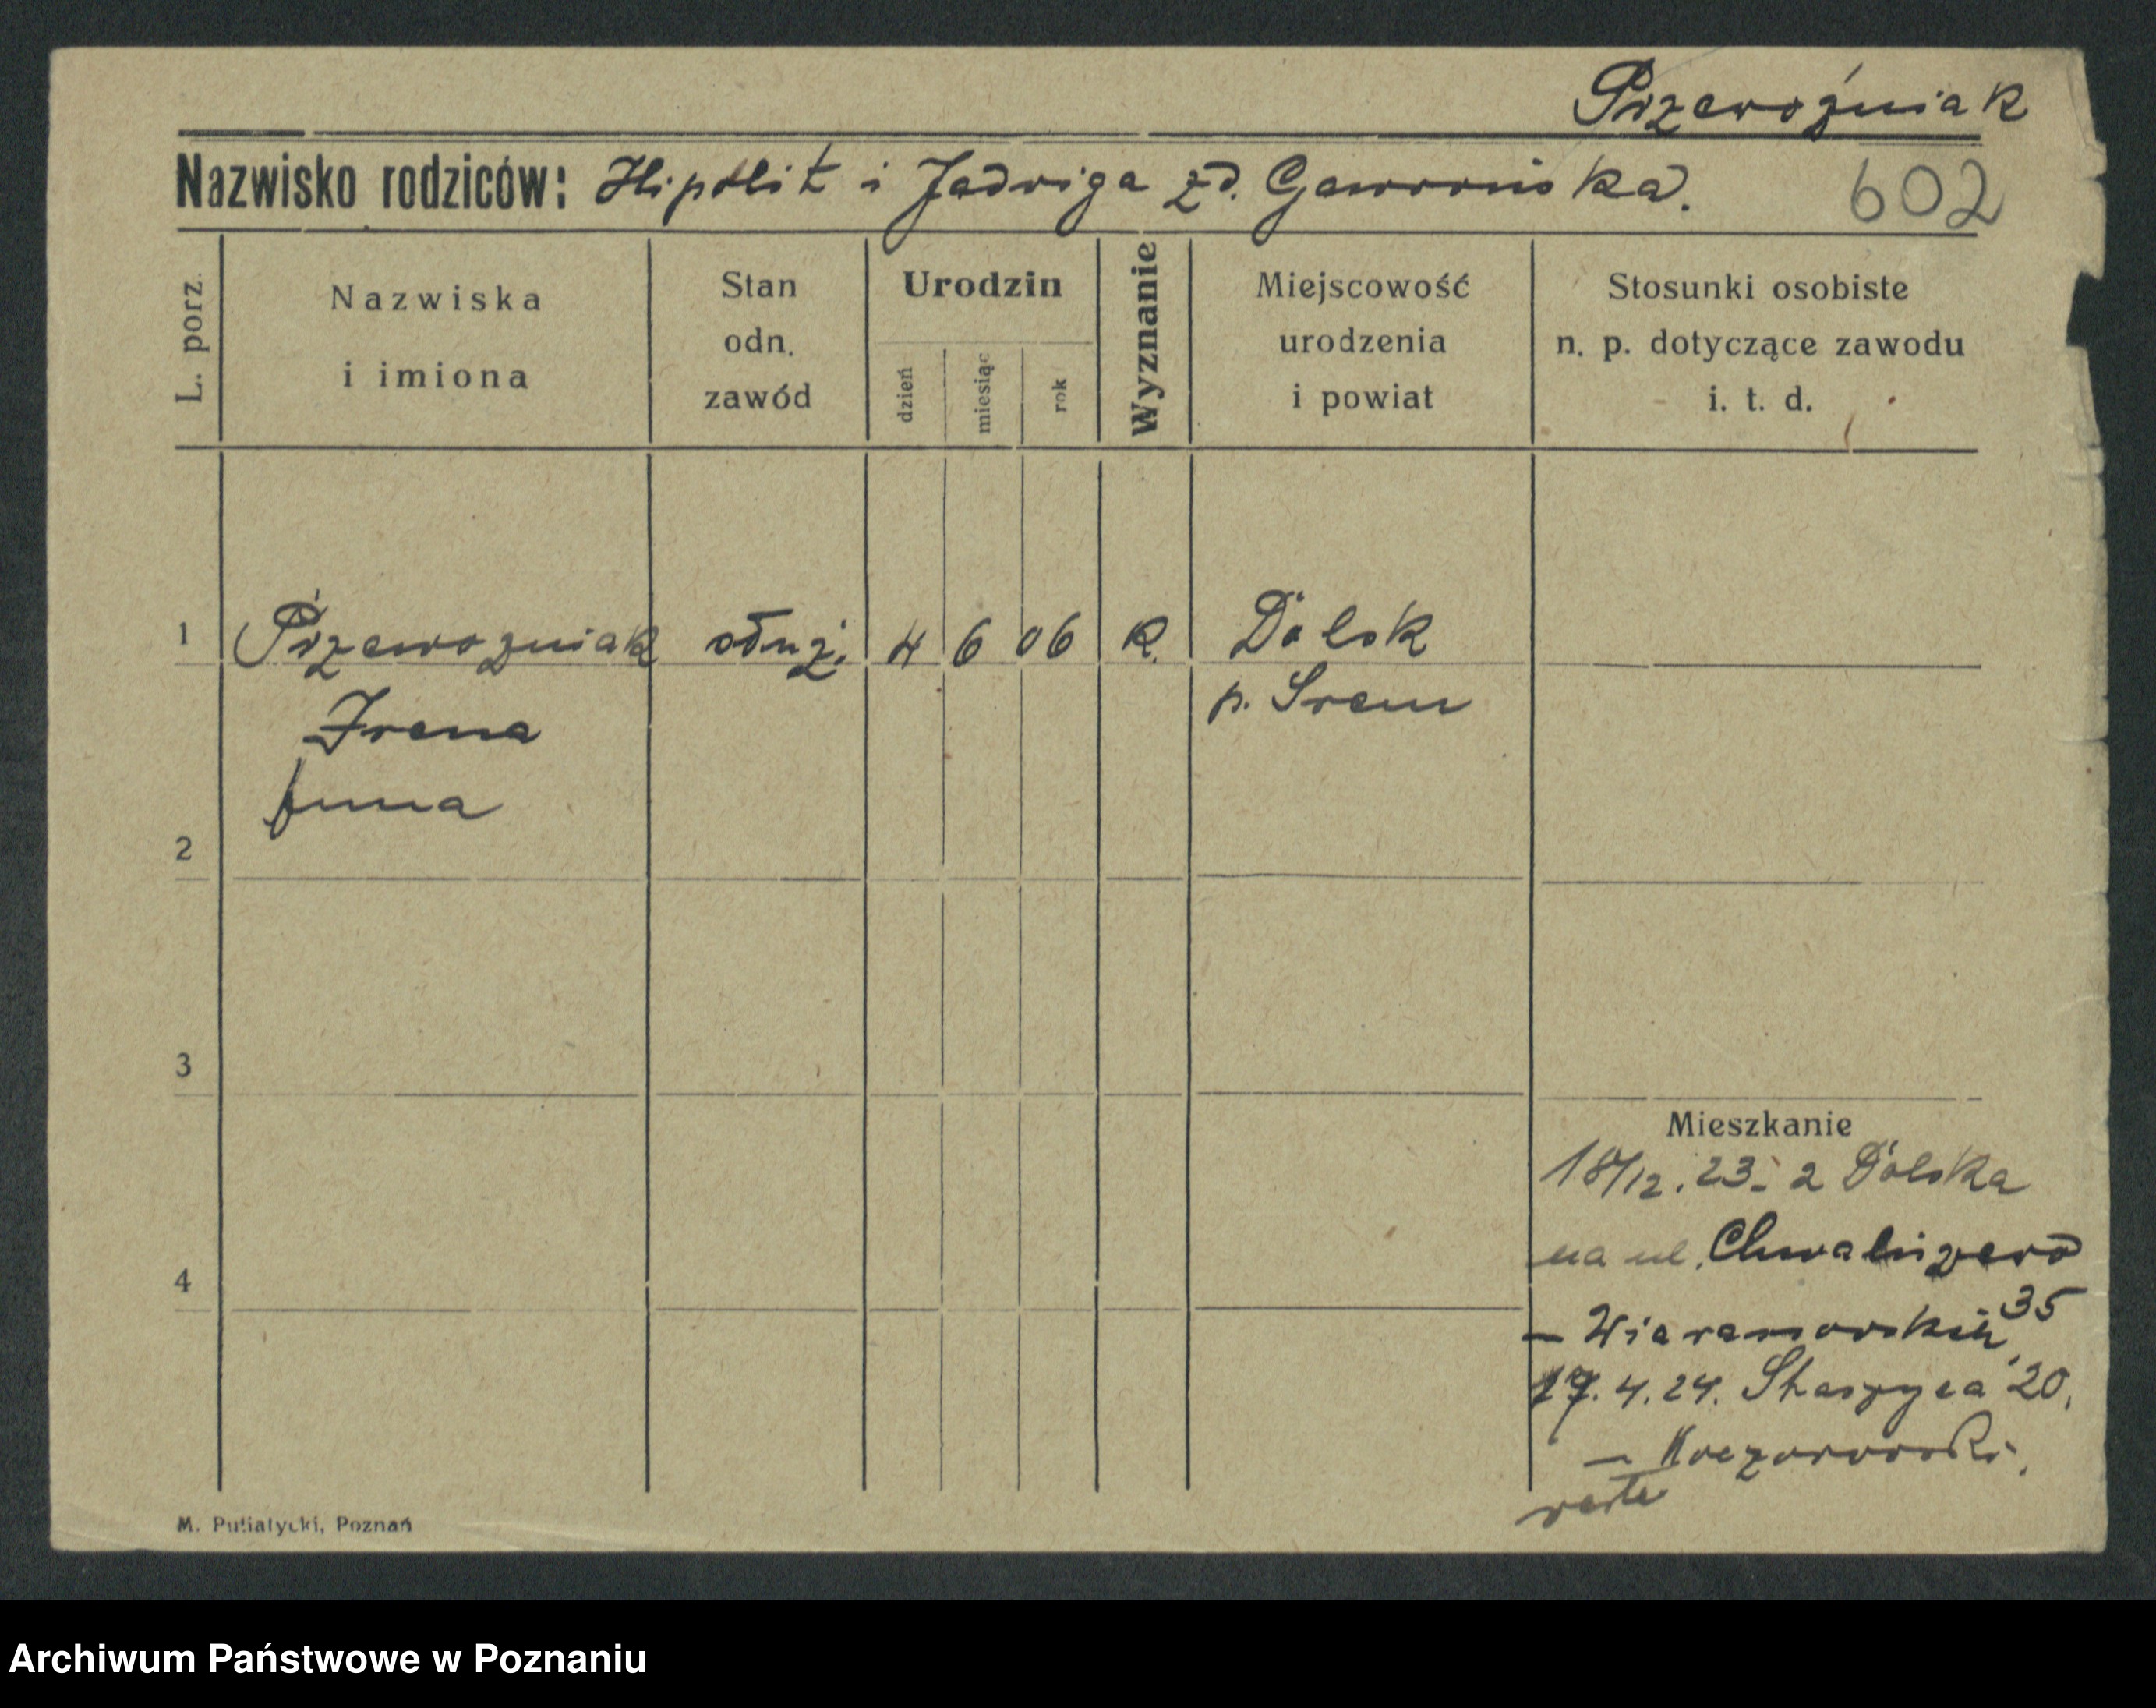 Przewoźniak
Nazwisko rodziców: Hipolit i Jadwiga zd. Gawrońska.
602
L. porz.
Nazwiska
i imiona
Stan
odn.
zawód
Urodzin
dzień
miesiąc
rok
Wyznanie
Miejscowość
urodzenia
i powiat
Stosunki osobiste
n. p. dotyczące zawodu
i. t. d.
1 Przewozniak służ. 4 6 06 R. Dolsk
Irena p. Srem
Anna
2
3
4
Mieszkanie
18/12.23. z Dolska
na ul. Chwaliszewo
35
17.4.24. Staszyca 20.
M. Putiatycki, Poznań
Archiwum Państwowe w Poznaniu